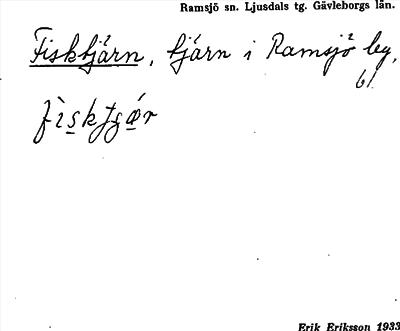 Ramsjö sn. Ljusdals tg. Gävleborgs län.
Fisktjärn, tjärn i Ramsjö by,
61
Erik Eriksson 1933